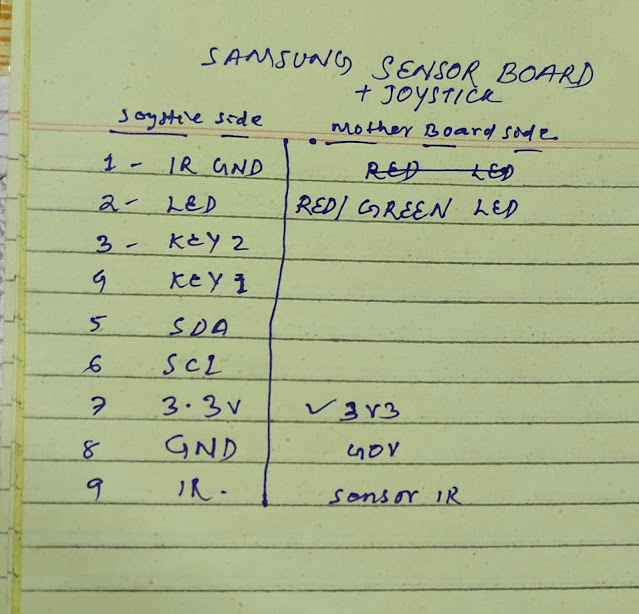 SAMSUNG SENSOR BOARD
+ JOYSTICK
Joystic side Mother Board side
1 - IR GND RED LED
2 - LED RED/ GREEN LED
3 - KEY 2
4 KEY 1
5 SDA
6 SCL
7 3.3V ✓ 3V3
8 GND
9 IR. Sensor IR